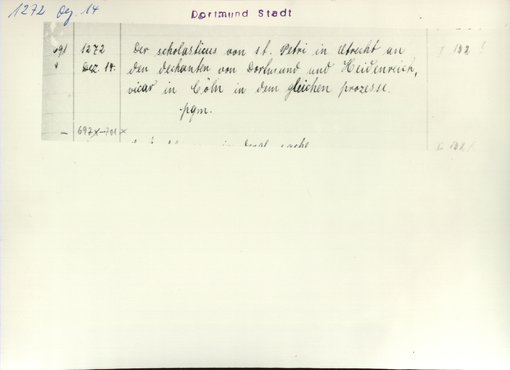 1272 Dez. 14
Dortmund Stadt
1272 Der scholasticus von st. Petri in Utrecht an
Dez. 14. den dechanten von Dortmund und Heidenreich,
vicar in Cöln in dem gleichen prozesse.
pgm.